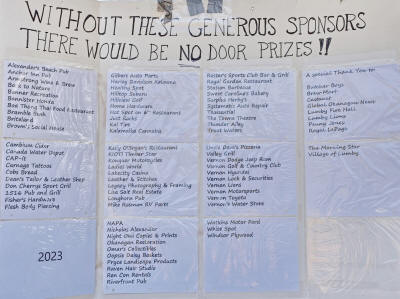 WITHOUT THESE GENEROUS SPONSORS
THERE WOULD BE NO DOOR PRIZES !!
Alexander's Beach Pub
Anchor Inn Pub
Armstrong Wine & Brew
Be & to Nature
Bannister Honda
Boo Thong Thai Food Restaurant
Bramble Bush
Briteland
Brown's Social House
Gilbert Auto Parts
Harley Davidson Kelowna
Howling Spot
Hilltop Subaru
Hillview Golf
Home Hardware
Hot Spot on 6th Restaurant
Just Baked
Kal Tire
Kalamalka Cannabis
Roster's Sports Club Bar & Grill
Royal Garden Restaurant
Station Barbecue
Sweet Caroline's Bakery
Surplus Herby's
Systematic Auto Repair
Thassavial
The Towne Theatre
Thunder Alley
Trout Waters
A special Thank You to:
Butcher Boys
Brew Mart
Global Okanagan News
Lumby Fun Hall
Lumby Lions
Stump Jones
Royal LePage
Cambium Cider
Canada Water Depot
CAP-it
Carnage Tattoos
Cobs Bread
Dean's Tailor & Leather Shop
Don Cherrys Sport Grill
1516 Pub and Grill
Fisher's Hardware
Flesh Body Piercing
Kelly O'Bryan's Restaurant
KIOTI Timber Star
Kongur Motorcycles
Ladies World
Lakecity Casino
Leather & Stitches
Legacy Photography & Framing
Lisa Salt Real Estate
Longhorn Pub
Mike Rosman RV Parts
Uncle Dave's Pizzeria
Valley Grill
Vernon Dodge Jeep Ram
Vernon Golf & Country Club
Vernon Hyundai
Vernon Lock & Securities
Vernon Lions
Vernon Motorsports
Vernon Toyota
Vernon's Water Store
The Morning Star
Village of Lumby
2023
NAPA
Nicholas Alexander
Night Owl Copies & Prints
Okanagan Restoration
Omar's Collectibles
Oopsie Daisy Baskets
Pryce Landscape Products
Raven Hair Studio
Ren Con Rentals
Riverfront Pub
Watkins Motor Ford
White Spot
Windsor Plywood